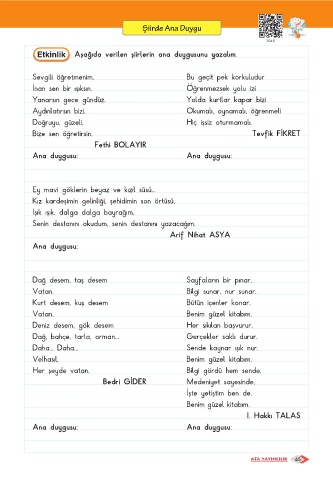 Şiirde Ana Duygu
Etkinlik Aşağıda verilen şiirlerin ana duygusunu yazalım.
Sevgili öğretmenim,
İnan sen bir ışıksın.
Yanarsın gece gündüz,
Aydınlatırsın bizi.
Doğruyu, güzeli,
Bize sen öğretirsin.
Fethi BOLAYIR
Ana duygusu:
Bu geçit pek korkuludur
Öğrenmezsek yolu izi
Yolda kurtlar kapar bizi
Okumalı, oynamalı, öğrenmeli
Hiç işsiz oturmamalı.
Tevfik FİKRET
Ana duygusu:
Ey mavi göklerin beyaz ve kızıl süsü...
Kız kardeşimin gelinliği, şehidimin son örtüsü,
Işık ışık, dalga dalga bayrağım,
Senin destanını okudum, senin destanını yazacağım.
Arif Nihat ASYA
Ana duygusu:
Dağ desem, taş desem
Vatan.
Kurt desem, kuş desem
Vatan.
Deniz desem, gök desem
Dağ, bahçe, tarla, orman...
Daha... Daha...
Velhasıl,
Her şeyde vatan.
Bedri GİDER
Ana duygusu:
Sayfaların bir pınar,
Bilgi sunar, nur sunar.
Bütün içenler kanar,
Benim güzel kitabım.
Her sıkılan başvurur,
Gerçekler saklı durur.
Sende kaynar ışık nur.
Benim güzel kitabım.
Bilgi gördü hem sende.
Medeniyet sayesinde,
İşte yetiştim ben de.
Benim güzel kitabım.
İ. Hakkı TALAS
Ana duygusu:
ATA YAYINCILIK